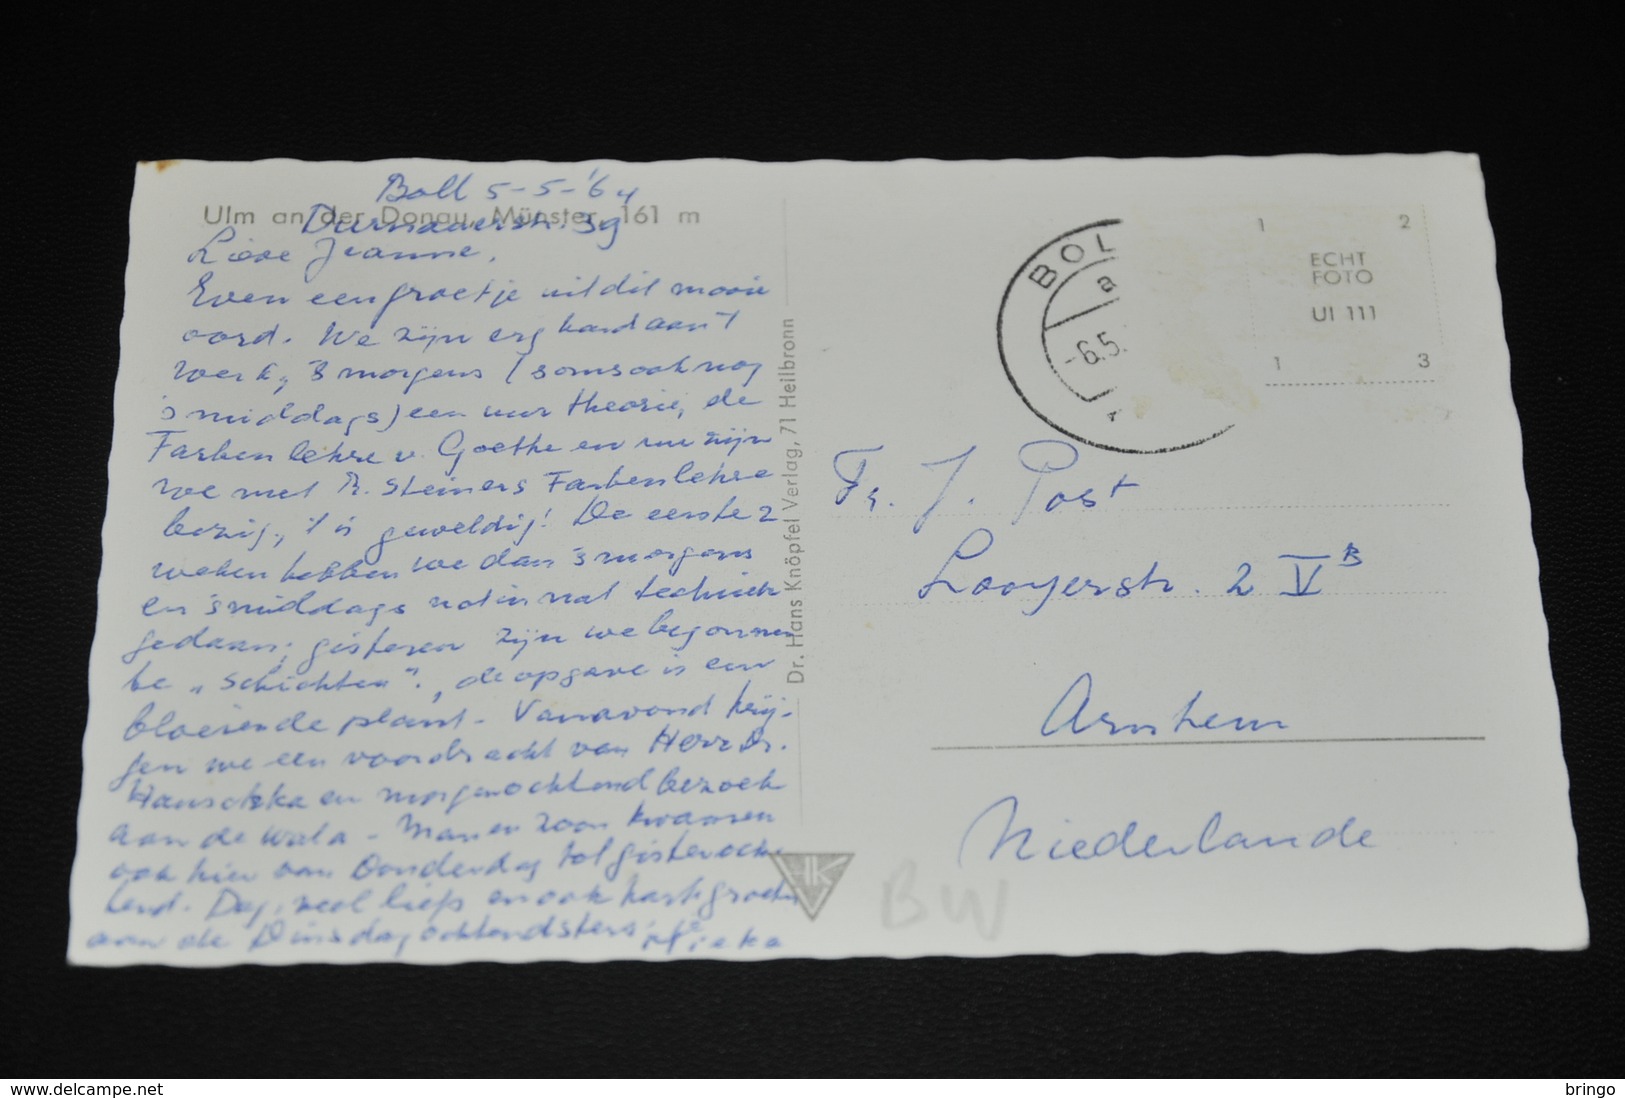 Boll 5-5-'64
Ulm an der Donau, Münster, 161 m
Durnauerstr. 39
Lieve Jeanne,
Even een groetje uit dit mooie
oord. We zijn erg hard aan 't
werk, 's morgens (soms ook nog
's middags) een uur theorie, de
Farbenlehre v. Goethe en nu zijn
we met R. Steiners Farbenlehre
bezig, 't is geweldig! De eerste 2
weken hebben we dan 's morgens
en 's middags nat in nat techniek
gedaan; gisteren zijn we begonnen
te „Schichten", de opgave is een
bloeiende plant - Vanavond krij-
gen we een voordracht van Herr Dr.
Hauschka en morgenochtend bezoek
aan de Wala - Man en zoon kwamen
ook hier van Donderdag tot gisteroch-
tend. Dag, veel liefs en ook hart. groeten
aan de Dinsdagochtendsters
Dr. Hans Knöpfel Verlag, 71 Heilbronn
HK
BOL
a
-6.5.
1 2
ECHT
FOTO
Ul 111
1 3
Fr. J. Post
Looyerstr. 2 V B
Arnhem
Niederlande
BW
www.delcampe.net
bringo